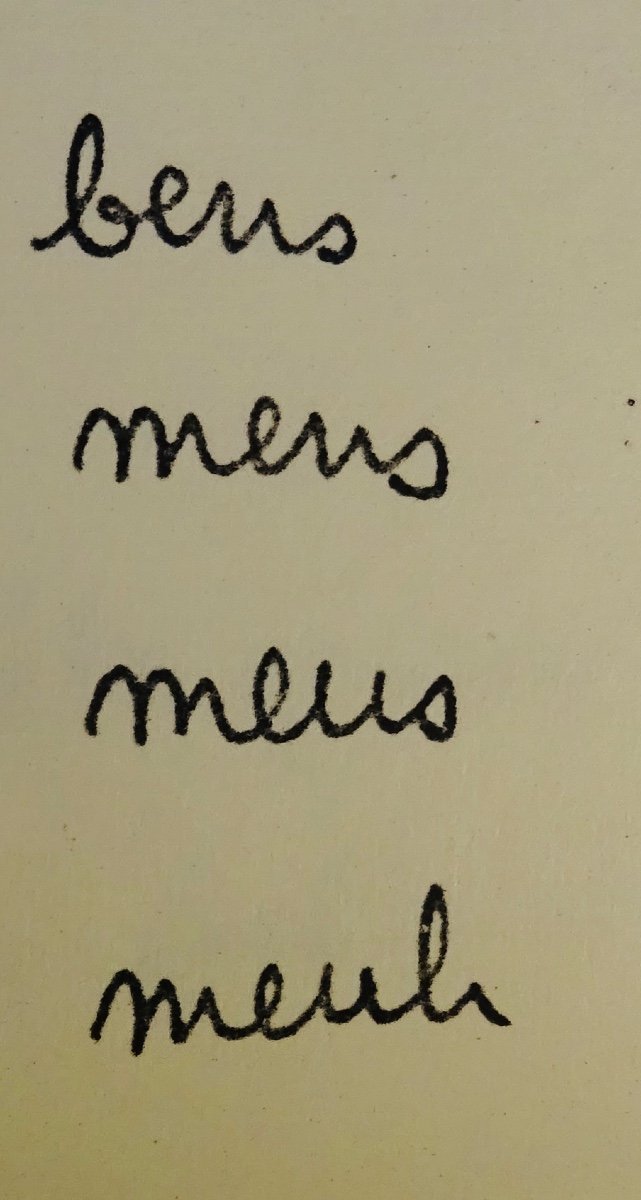 beus
meus
meus
meuh